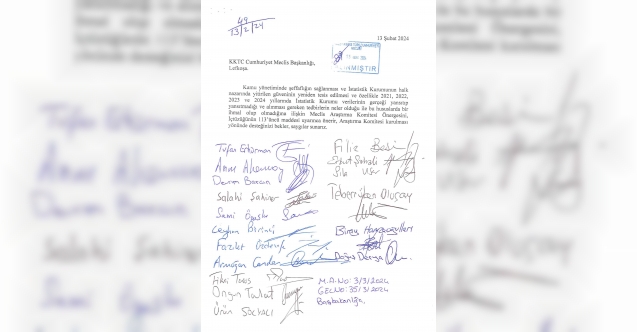 49
13/2/24
13 Şubat 2024
KKTC Cumhuriyet Meclis Başkanlığı,
Lefkoşa.
Kamu yönetiminde şeffaflığın sağlanması ve İstatistik Kurumunun halk
nazarında yitirilen güveninin yeniden tesis edilmesi ve özellikle 2021, 2022,
2023 ve 2024 yıllarında İstatistik Kurumu verilerinin gerçeği yansıtıp
yansıtmadığı ve alınması gereken tedbirlerin neler olduğu ile bu hususlarda bir
ihmal olup olmadığına ilişkin Meclis Araştırma Komitesi Önergesini,
İçtüzüğünün 113'üncü maddesi uyarınca önerir, Araştırma Komitesi kurulması
yönünde desteğinizi bekler, saygılar sunarız.
Tufan Erhürman
Filiz Besim
Devrim Barçın
Sıla Usar
Salahi Şahiner
Teberrüken Uluçay
Sami Özuslu
Ceyhun Birinci
Biray Hamzaoğulları
Armağan Candan
Doğuş Derya
Fikri Toros
Ongun Talat
Ürün Solyalı
M.A.NO: 3/3/2024
GEL.NO: 35/3/2024
Başbakanlığa,